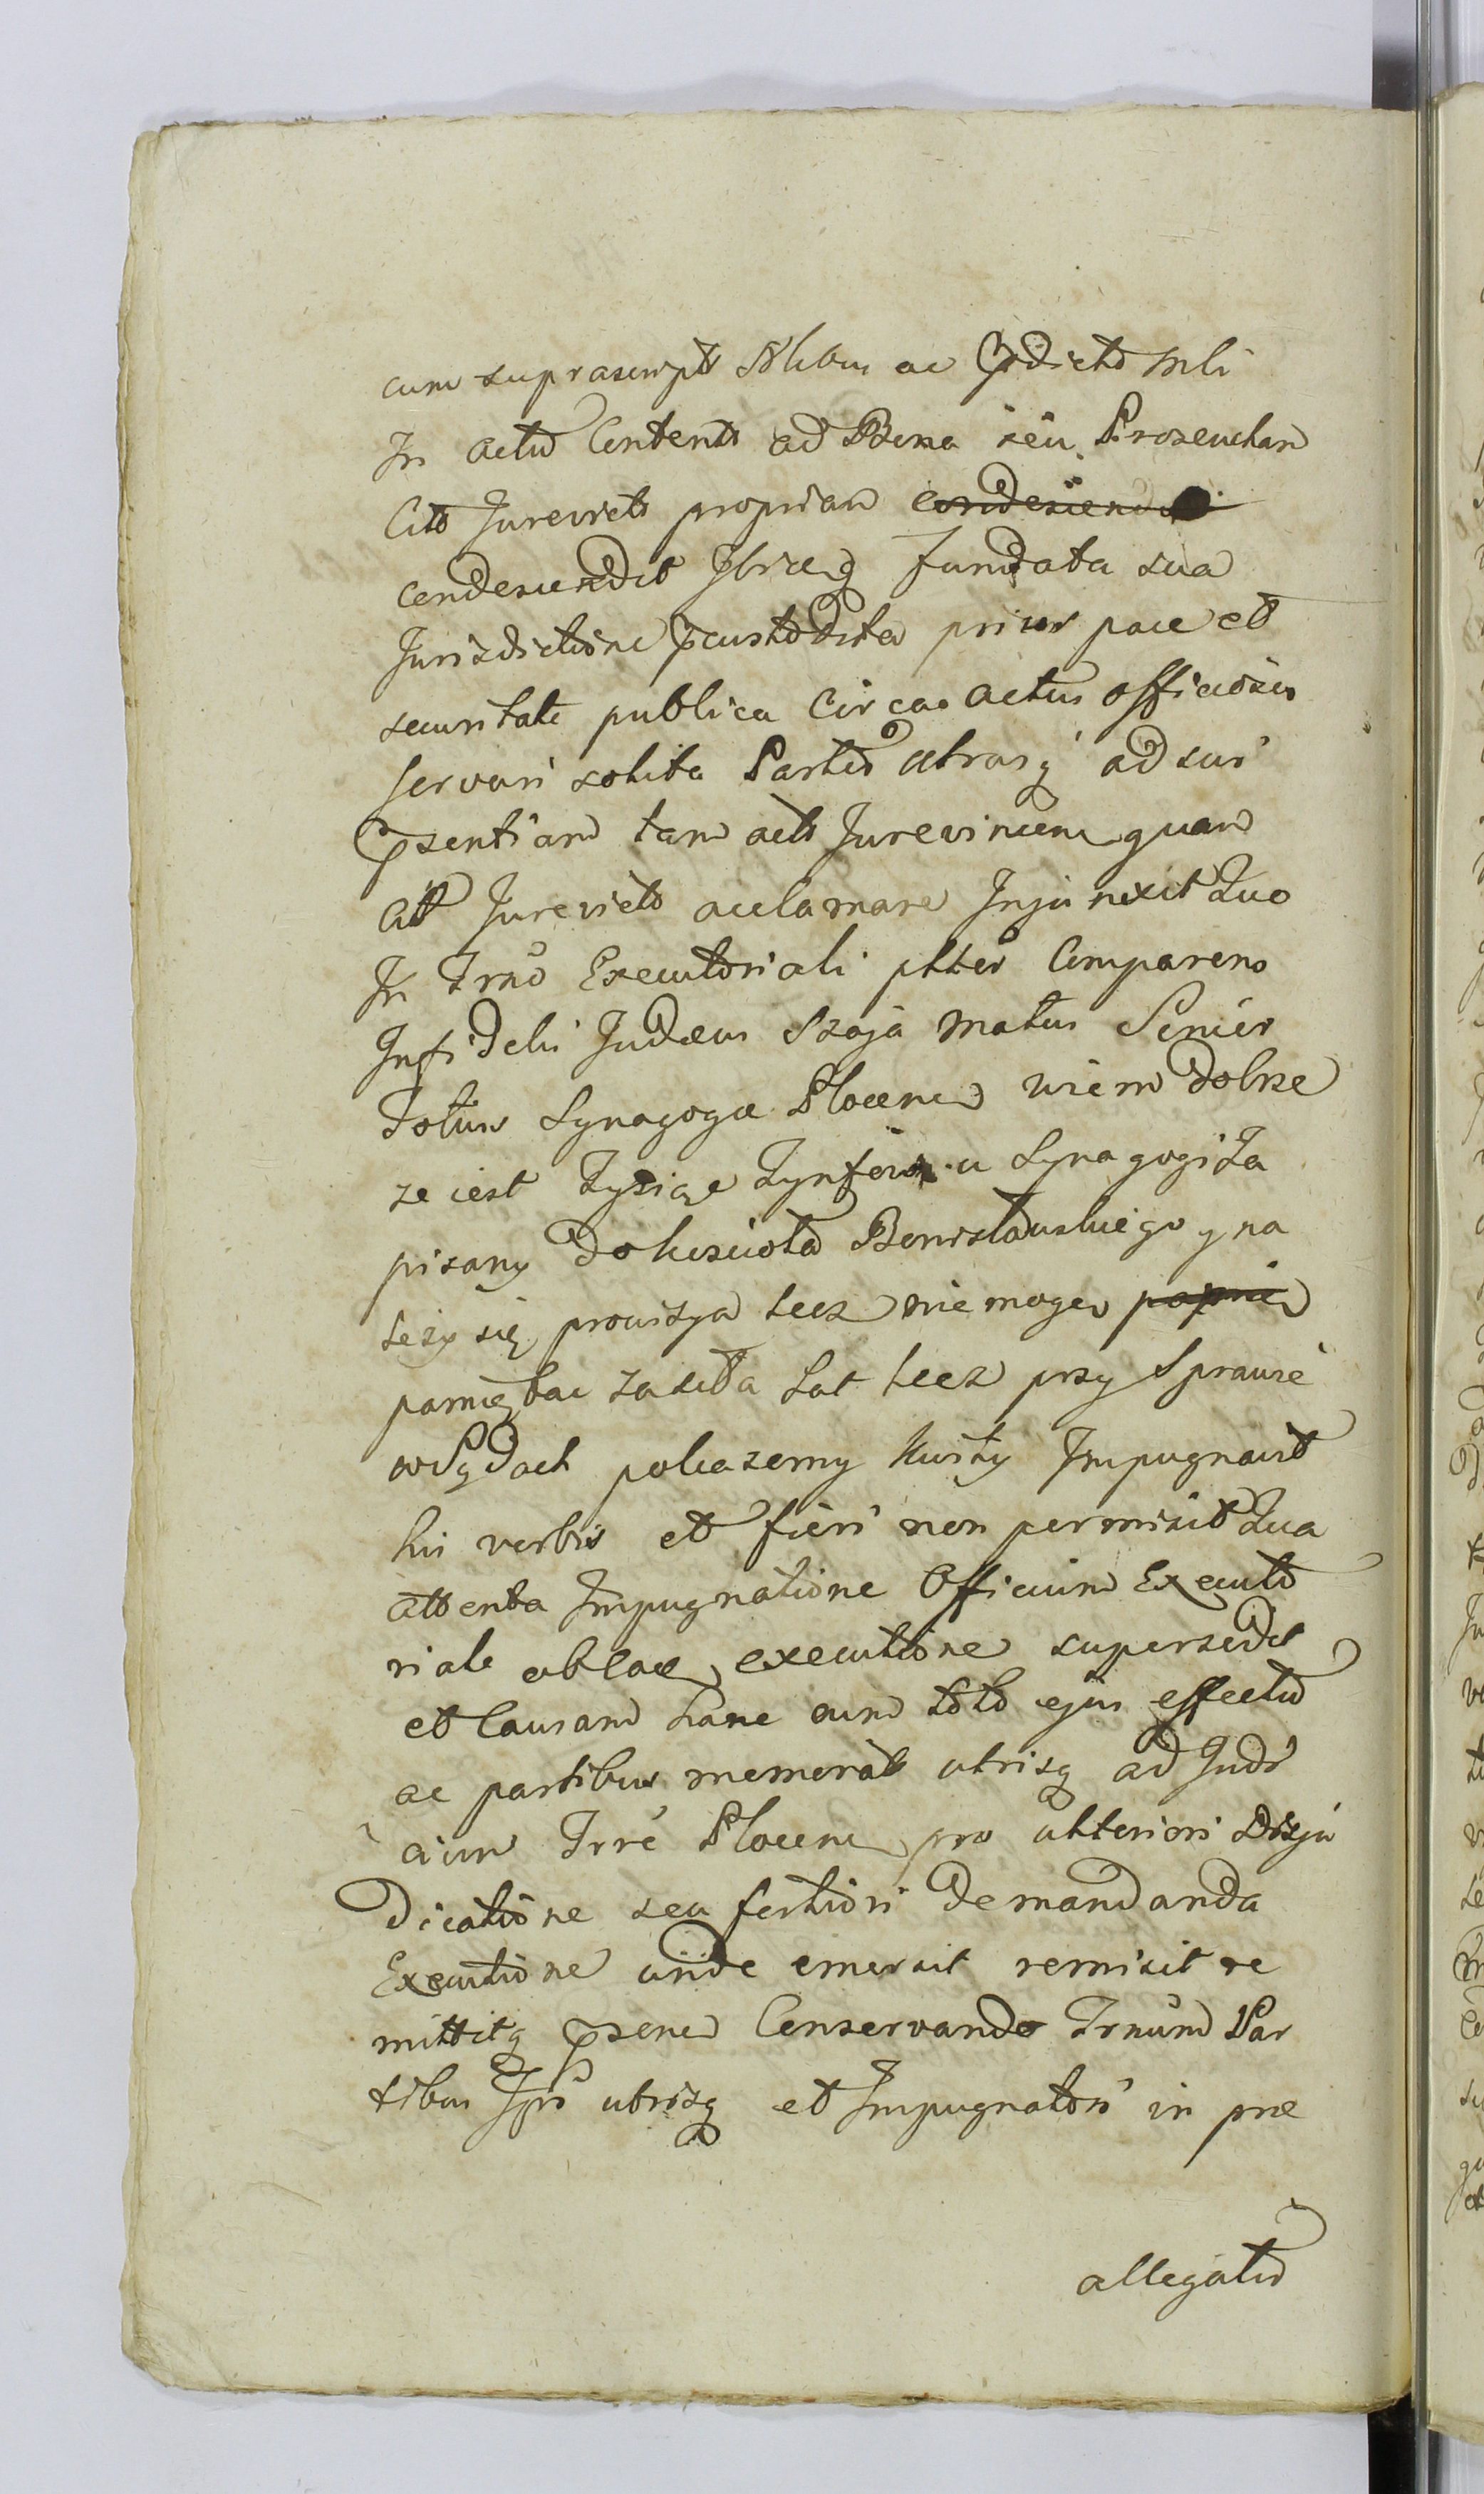 cum suprascript Nlibus ac Pdicto Mli
In actu Content ad Bona seu Proseucham
Citt Jurevict propriam condescendit
condescendit Ibieq fundata sua
Jurisdictione Pcustodita prius pace et
securitate publica Circa actus officiosos
servari solita Partes utrasq ad sui
Psentiam tam act Jurevincen quam
Citt Jurevict acclamare Injunxit Quo
In Trno Executoriali ptter Comparens
Infidelis Judæus Szaja Matus Senior
Totius Synagogæ Plocens wiem dobrze
ze iest Tysiąc Tynfow u Synagogi Za
pisany do kościoła Bonisławskiego y na
leży się prowizya lecz nie mogę papie
pamiętac za wiela Lat lecz przy Sprawie
w Sądach pokazemy kwity Impugnavit
his verbis et fieri non permisit Qua
attenta Impugnatione Officium Executo
riale ab eac executione supersedit
et Causam hanc cum toto ejus effectu
ac partibus memorat utrisq ad Judi
cium Trre Plocen pro ulteriori Disju
dicatione seu fortiori demandanda
Executione unde emersit remisit re
mittitq Psens Conservando Trnum Par
tibus Ipsis utrisq et Impugnatori in præ
allegato